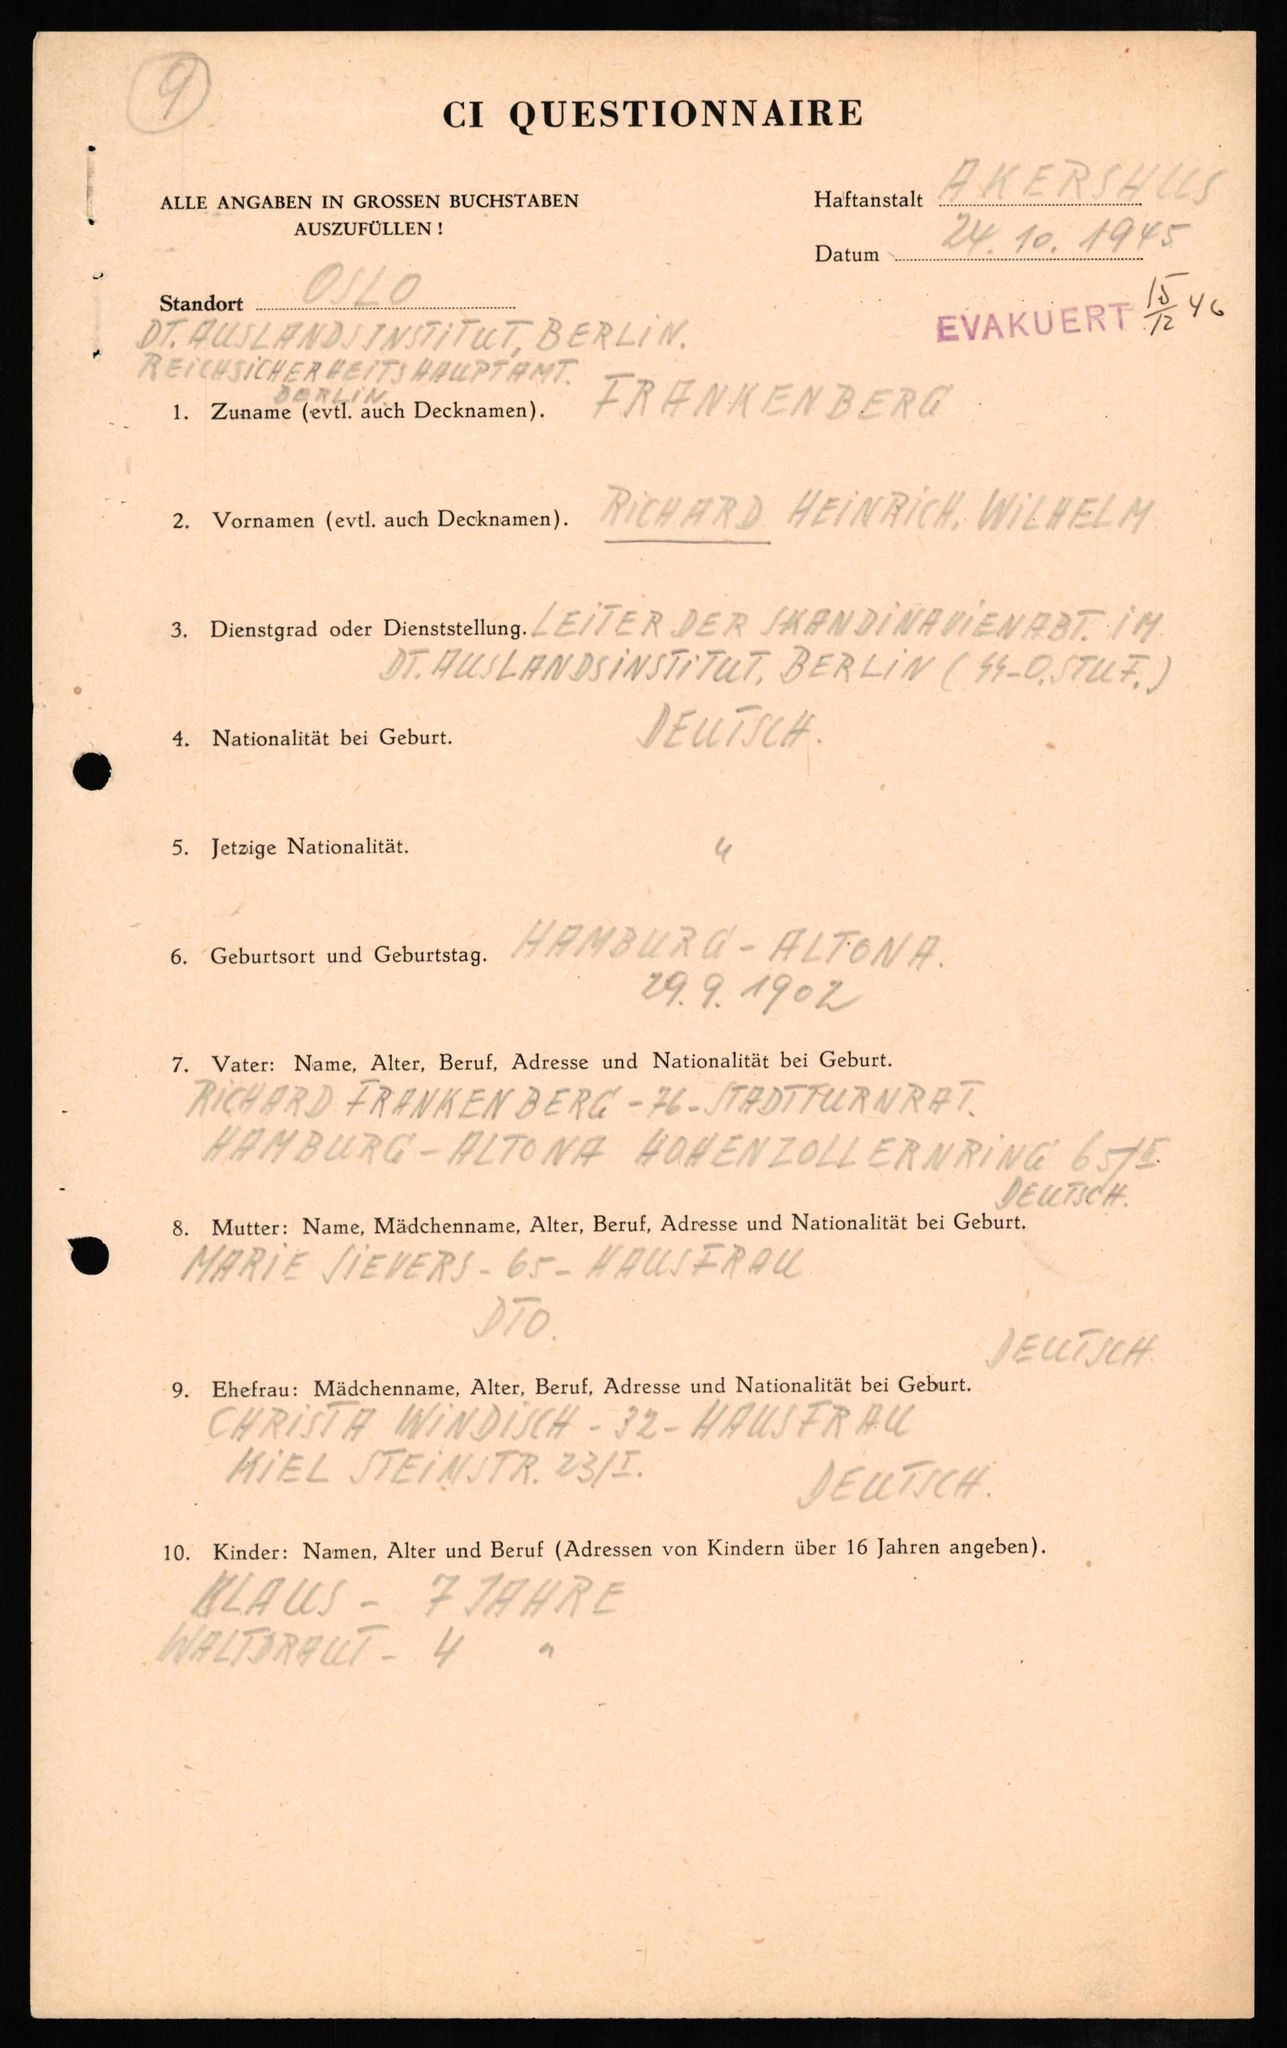 9
CI QUESTIONNAIRE
ALLE ANGABEN IN GROSSEN BUCHSTABEN
AUSZUFÜLLEN!
Haftanstalt AKERSHUS
Datum 24.10.1945
Standort OSLO
EVAKUERT 15/12 46
DT. AUSLANDSINSTITUT, BERLIN.
REICHSICHERHEITSHAUPTAMT.
BERLIN
1. Zuname (evtl. auch Decknamen). FRANKENBERG
2. Vornamen (evtl. auch Decknamen). RICHARD HEINRICH. WILHELM
3. Dienstgrad oder Dienststellung. LEITER DER SKANDINAVIENABT. IM
DT. AUSLANDSINSTITUT, BERLIN (SS-O.STUF.)
4. Nationalität bei Geburt. DEUTSCH.
5. Jetzige Nationalität. "
6. Geburtsort und Geburtstag. HAMBURG - ALTONA.
29.9.1902
7. Vater: Name, Alter, Beruf, Adresse und Nationalität bei Geburt.
RICHARD FRANKENBERG - 76 - STADTTURNRAT.
HAMBURG - ALTONA HOHENZOLLERNRING 65/II.
DEUTSCH.
8. Mutter: Name, Mädchenname, Alter, Beruf, Adresse und Nationalität bei Geburt.
MARIE SIEVERS - 65 - HAUSFRAU
DTO.
DEUTSCH.
9. Ehefrau: Mädchenname, Alter, Beruf, Adresse und Nationalität bei Geburt.
CHRISTA WINDISCH - 32 - HAUSFRAU
KIEL STEINSTR. 23/I.
DEUTSCH.
10. Kinder: Namen, Alter und Beruf (Adressen von Kindern über 16 Jahren angeben).
KLAUS - 7 JAHRE
WALTDRAUT - 4 "